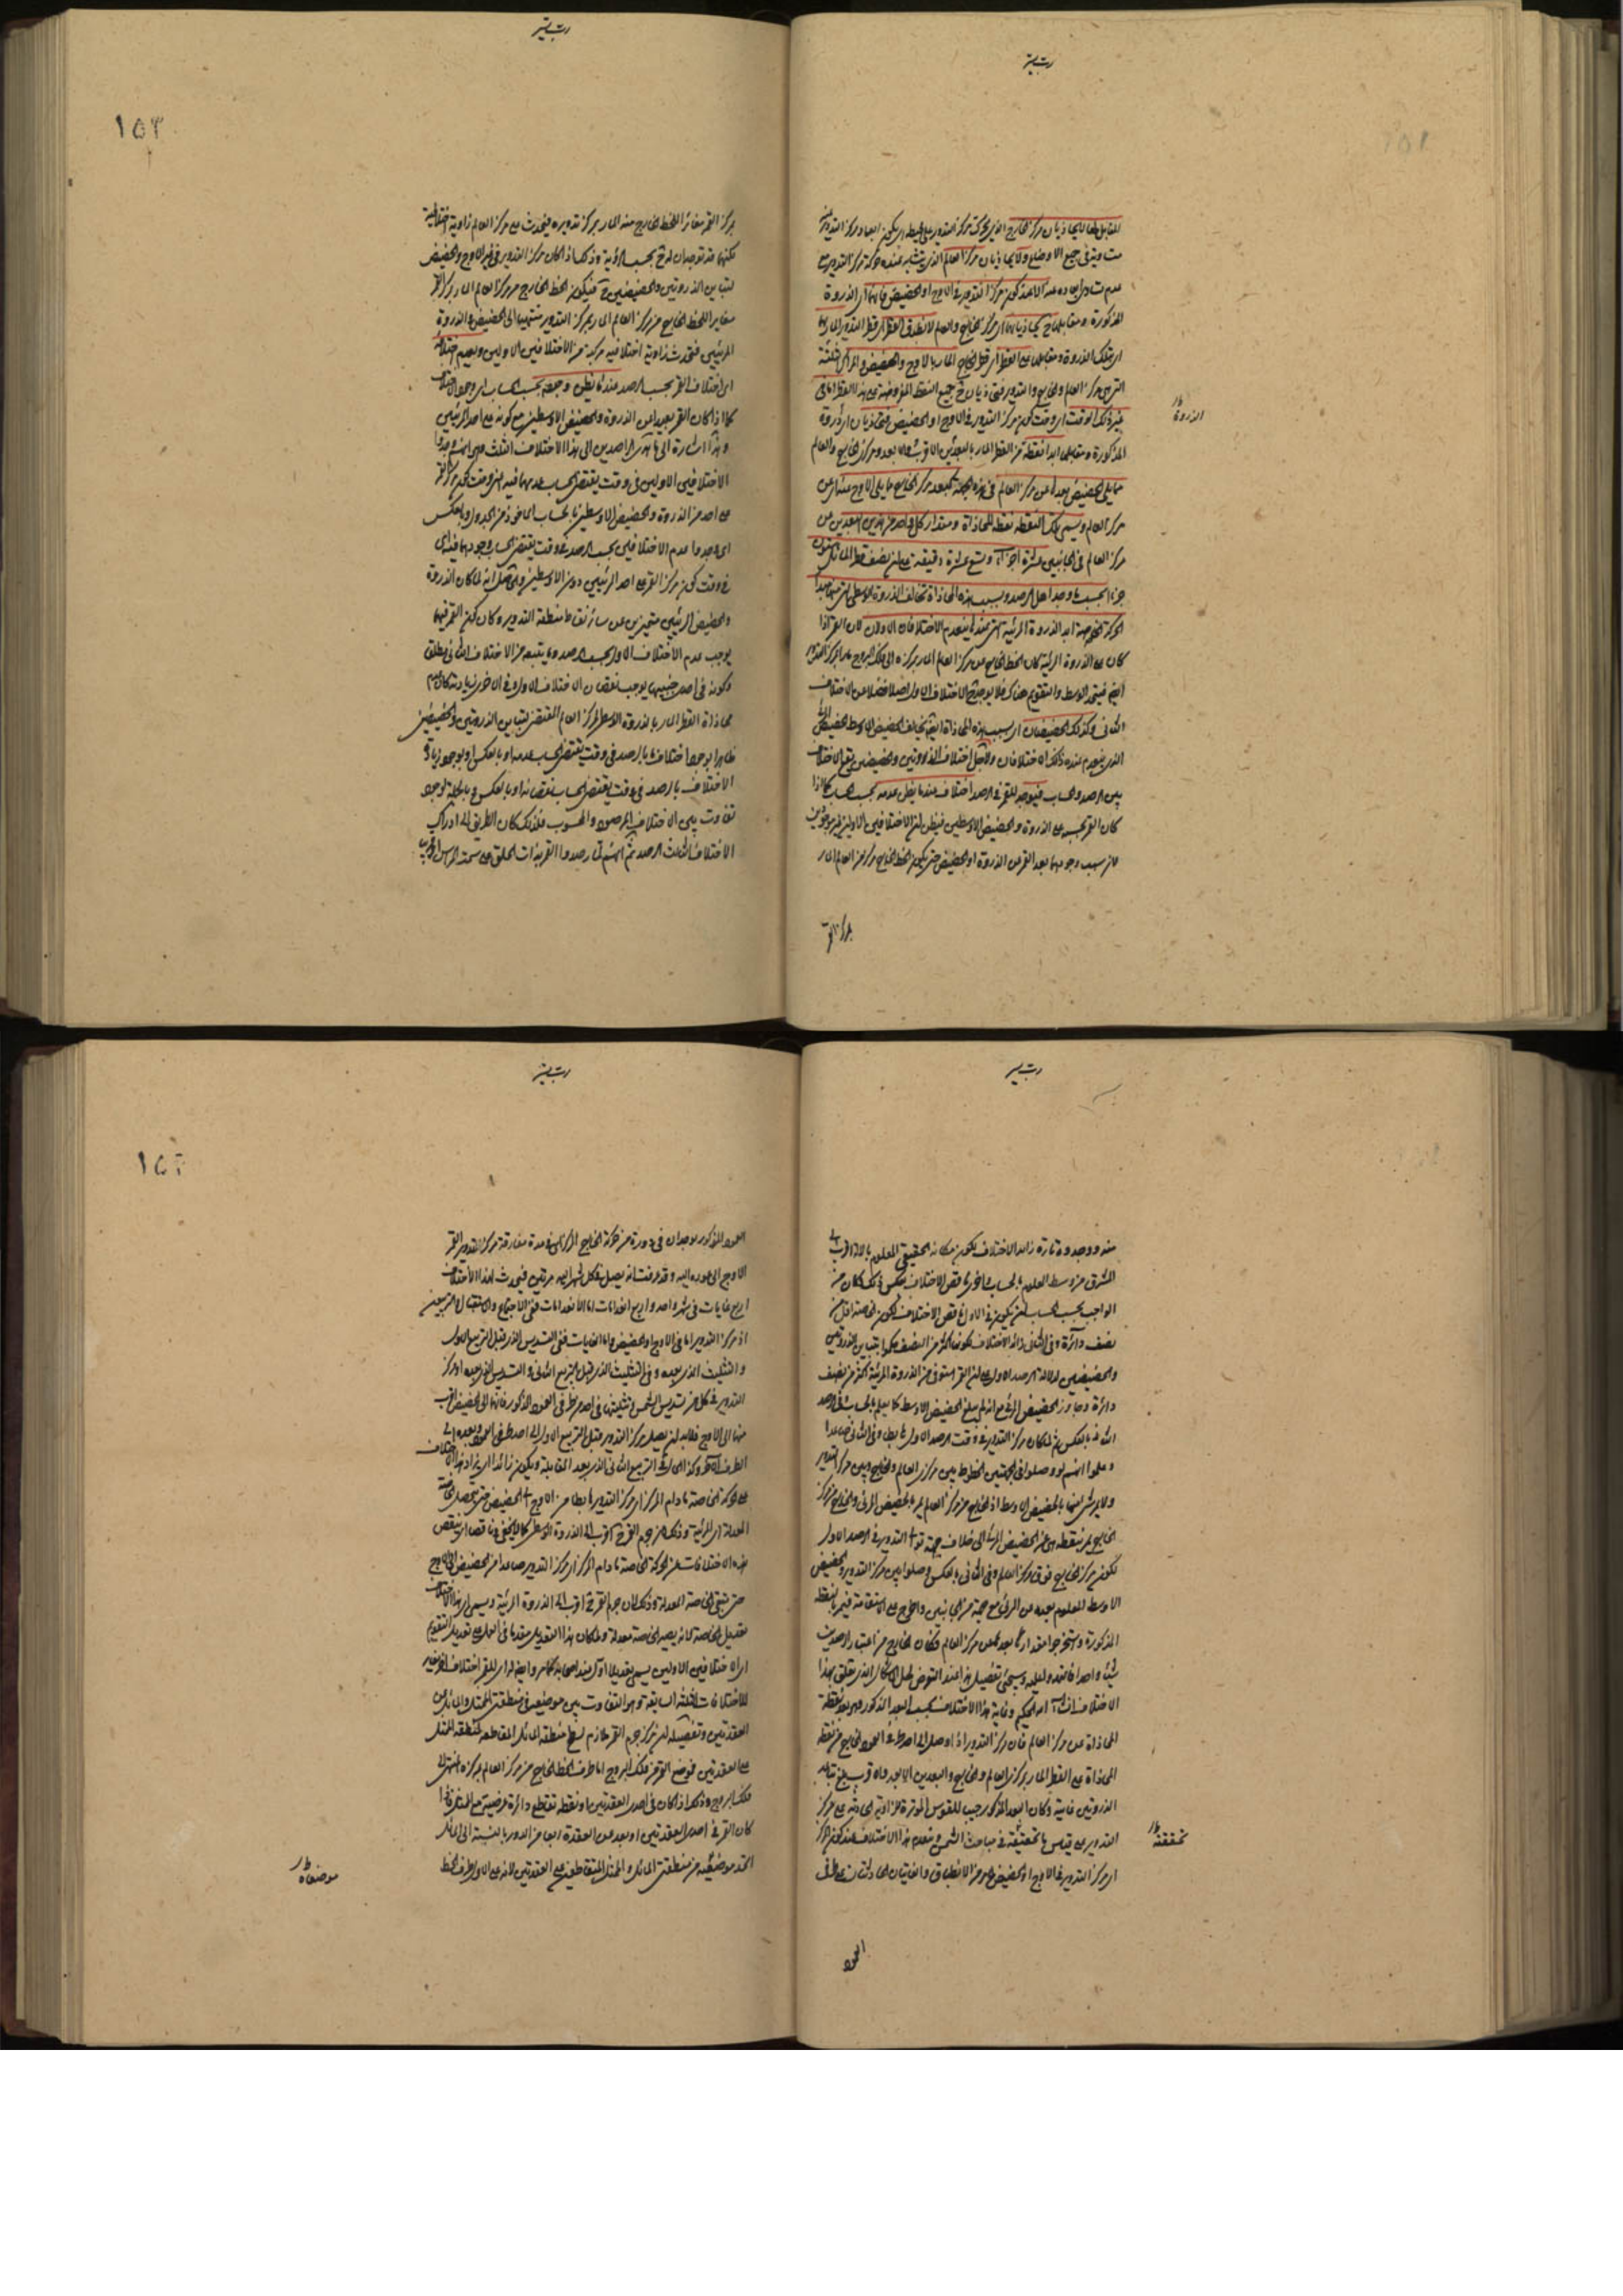 المقابل لها لا يحاذيان مركز الخارج الذي يتحرك مركز التدوير على محيطه اى يكون ابعاد مركز التدوير منه
متساوية فى جميع الاوضاع ولا يحاذيان مركز العالم الذى يتشابه عنده حركة مركز التدوير مع
عدم تساوى ابعاده عنه الا عند كون مركز التدوير فى الاوج او الحضيض فانهما اى الذروة
المذكورة ومقابلها ح يحاذيانهما اى مركز الخارج والعالم لانطباق القطر اى قطر التدوير المار بها
اى بتلك الذروة ومقابلها على القطر اى قطر الخارج المار بالاوج والحضيض والمراكز الثلثة
التى هى مركز العالم والخارج والتدوير فيحاذيان ح جميع النقط المفروضة على هذا القطر اما فى
غير ذلك الوقت اى وقت كون مركز التدوير فى الاوج او الحضيض فيحاذيان اى ذروة
الذروة
المذكورة ومقابلها ابدا نقطة من القطر المار بالبعدين الاقرب والابعد ومركز الخارج والعالم
مما يلى الحضيض بعدها عن مركز العالم فى هذه الجهة كبعد مركز الخارج مما يلى الاوج عنه اى عن
مركز العالم ويسمى تلك النقطة نقطة المحاذاة ومقدار كل واحد من هذين البعدين عن
مركز العالم فى الجانبين عشرة اجزاء وتسع عشرة دقيقة على ان نصف قطر المائل ستون
جزءا بحسب ما وجد اهل الرصد وبسبب هذه المحاذاة تخالف الذروة الوسطى التى منها مبدأ
الحركة الخاصة ابدا الذروة المرئية التى عندها ينعدم الاختلافان الاولان لان القمر اذا
كان على الذروة المرئية كان الخط الخارج من مركز العالم المار بمركزه الى فلك البروج مارا بمركز التدوير
ايضا فيتحد الوسط والتقويم هناك فلا يوجد ح الاختلاف الاول اصلا فضلا عن الاختلاف
الثانى وكذلك الحضيضان اى بسبب هذه المحاذاة ايضا يخالف الحضيض الاوسط الحضيض المرئى
الذى ينعدم عنده ذلك الاختلافان ولاجل اختلاف الذروتين والحضيضين يقع الاختلاف
بين الرصد والحساب فيوجد للقمر فى الرصد اختلاف عندما يظن عدمه بحسب الحساب كما اذا
كان القمر بحسبه على الذروة والحضيض الاوسطين فيظن ان الاختلافين الاولين غير موجودين
لان سبب وجودهما بعد القمر عن الذروة او الحضيض حتى يكون الخط الخارج من مركز العالم المار
بمركز القمر
١٥٣
بمركز القمر مغايرا للخط الخارج منه المار بمركز تدويره فيحدث على مركز العالم زاوية اختلافية
لكنهما قد توجدان له ح بحسب الرؤية وذلك اذا كان مركز التدوير فى غير الاوج والحضيض
لتباين الذروتين والحضيضين ح فيكون الخط الخارج من مركز العالم المار بمركز القمر
مغايرا للخط الخارج من مركز العالم المار بمركز التدوير منتهيا الى الحضيض والذروة
المرئيين فتحدث زاوية اختلافية مركبة من الاختلافين الاولين ويعدم اختلافه
اى اختلاف القمر بحسب الرصد عندما يظن وجوده بحسب الحساب اى وجود الاختلاف
كما اذا كان القمر بعيدا عن الذروة والحضيض الاوسطين مع كونه على احد المرئيين
وهذا اشارة الى ما هدى الراصدين الى هذا الاختلاف الثالث وهو انهم وجدوا
الاختلافين الاولين فى وقت يقتضى الحساب عدمهما فيه اى وقت كون مركز القمر
على احد من الذروة والحضيض الاوسطين بالحساب الماخوذ من الجدول وبالعكس
اى وجدوا عدم الاختلافين بحسب الرصد فى وقت يقتضى الحساب وجودهما فيه اى
فى وقت كون مركز القمر على احد المرئيين دون الاوسطين والحاصل انه لما كان الذروة
والحضيض المرئيين متميزين عن سائر نقاط منطقة التدوير وكان كون القمر فيهما
يوجب عدم الاختلاف الاول بحسب الرصد وما يتبعه من الاختلاف الثانى مطلقا
وكونه فى احد جنبيهما يوجب نقصان الاختلاف الاول وفى الاخر زيادته كان عدم
محاذاة القطر المار بالذروة الاوسط لمركز العالم المقتضى لتباين الذروتين والحضيضين
ظاهرا بوجود اختلاف ما بالرصد فى وقت يقتضى الحساب عدمه او بالعكس او بوجود زيادة
الاختلاف بالرصد فى وقت يقتضى الحساب نقصانه او بالعكس وبالجملة بوجود
تفاوت بين الاختلاف المرصود والمحسوب فلذلك كان الطريق الى ادراك
الاختلاف الثالث الرصد ثم انهم لما رصدوا القمر بذات الحلق على سمت الراس او قريبا
منه ووجدوه تارة زائد الاختلاف بكون مكانه الحقيقى المعلوم بالالة اقرب الى
المشرق من وسط المعلوم بالحساب واخرى ناقص الاختلاف بعكس ذلك كان من
الواجب بحسب الحساب ان يكون فى الاول ناقص الاختلاف لكون الخاصة اقل من
نصف دائرة وفى الثانى زائد الاختلاف لكونها اكثر من النصف حكموا بتباين الذروتين
والحضيضين لدلالة الرصد الاول على ان القمر استوفى من الذروة المرئية اكثر من نصف
دائرة وجاوز الحضيض المرئى مع انه لم يبلغ الحضيض الاوسط كما يعلم بالحساب وفى الرصد
الثانى بالعكس ثم لما كان مركز التدوير فى وقت الرصد الاول هابطا وفى الثانى صاعدا
وعلموا انهم لو وصلوا فى الجهتين الخطوط بين مركز العالم والخارج وبين مركز التدوير
ولم يمر شئ منها بالحضيض الاوسط اذ الخارج من مركز العالم يمر بالحضيض المرئى والخارج من مركز
الخارج يمر بنقطة هى عن الحضيض المرئى الى خلاف جهة توالى التدوير فى الرصد الاول
لكون مركز الخارج فوق مركز العالم وفى الثانى بالعكس وصلوا بين مركز التدوير والحضيض
الاوسط المعلوم بعده عن المرئى مع جهة من الجانبين واخرج على الاستقامة فيمر بالنقطة
المذكورة واستخرجوا مقدار بعدها عن مركز العالم فكان الخارج من اعتبار الرصدين
شيئا واحدا فاعتمد عليه وسيجئ تفصيل هذا عند التعرض لحل الاشكال الذى يتعلق بهذا
الاختلاف ان شاء الله الحكيم وغاية هذا الاختلاف بحسب البعد المذكور وهو بعد نقطة
المحاذاة عن مركز العالم فان مركز التدوير اذا وصل الى احد طرفى العمود الخارج من نقطة
المحاذاة على القطر المار بمركز العالم والخارج والبعدين الابعد والاقرب بلغ تباعد
الذروتين غايته وكان البعد المذكور جيب للقوس الموترة للزاوية الحادثة على مركز
التدوير على قياس ما تحققته فى مباحث الشمس وينعدم هذا الاختلاف عند كون المركز
تحققته
اى مركز التدوير فى الاوج او الحضيض لما مر من الانطباق والغايتان الحادثتان على طرف
العمود
١٥٤
العمود المذكور يوجدان فى دورة من حركة الخارج المركز اى فى مدة مفارقة مركز التدوير القمر
الاوج الى عوده اليه وقد عرفت انه يصل فى كل شهر اليه مرتين فيحدث لهذا الاختلاف
اربع غايات فى شهر واحد واربع انعدامات اما الانعدامات ففى الاجتماع والاستقبال والتربيعين
اذ مركز التدوير اما فى الاوج او الحضيض واما الغايات ففى التسديس الذى قبل التربيع الاول
والتثليث الذى بعده وفى التثليث الذى قبل التربيع الثانى والتسديس الذى بعده اذ مركز
التدوير فى كل من تسديس الشمس وتثليثها فى احد طرفى العمود المذكور فانهما الى الحضيض اقرب
منهما الى الاوج فلا بد ان يصل مركز التدوير قبل التربيع الاول الى احد طرفى العمود وبعده الى
الطرف الاخر وكذا الحال فى التربيع الثانى الذى بعد المقابلة ويكون زائدا اى يزاد هذا الاختلاف
على الحركة الخاصة ما دام المركز اى مركز التدوير هابطا من الاوج الى الحضيض حتى تحصل الخاصة
المعدلة اى المرئية وذلك لان جرم القمر ح اقرب الى الذروة الوسطى كما لا يخفى وناقصا اى ينقص
هذه الاختلافات عن الحركة الخاصة ما دام المركز اى مركز التدوير صاعدا من الحضيض الى الاوج
حتى تبقى الخاصة المعدلة وذلك لان جرم القمر ح اقرب الى الذروة المرئية ويسمى اى هذا الاختلاف
تعديل الخاصة لانه يصير الخاصة معدلة ولما كان هذا التعديل مقدما فى العمل على تعديل التقويم
اى الاختلافين الاولين يسمى تعديلا اول عند اصحابه كما مر وايضا له اى للقمر اختلاف اخر مغاير
للاختلافات الثلثة السابقة وهو التفاوت بين موضعيه فى منطقتى الممثل والمائل عن
العقدتين وتفصيله ان مركز جرم القمر ملازم لسطح منطقة المائل المقاطعة لمنطقة الممثل
على العقدتين فموضع القمر من فلك البروج اما طرف الخط الخارج من مركز العالم بمركزه المنتهى الى
فلك البروج وذلك اذا كان فى احدى العقدتين او نقطة تقاطع دائرة عرضية مع الممثل فاذا
كان القمر فى احدى العقدتين او بعد عن العقدة ارباعا من الدور بالنسبة الى المائل
اتحد موضعيه من منطقتى المائل والممثل المتقاطعين على العقدتين لانه على الاول طرف الخط
موضعاه